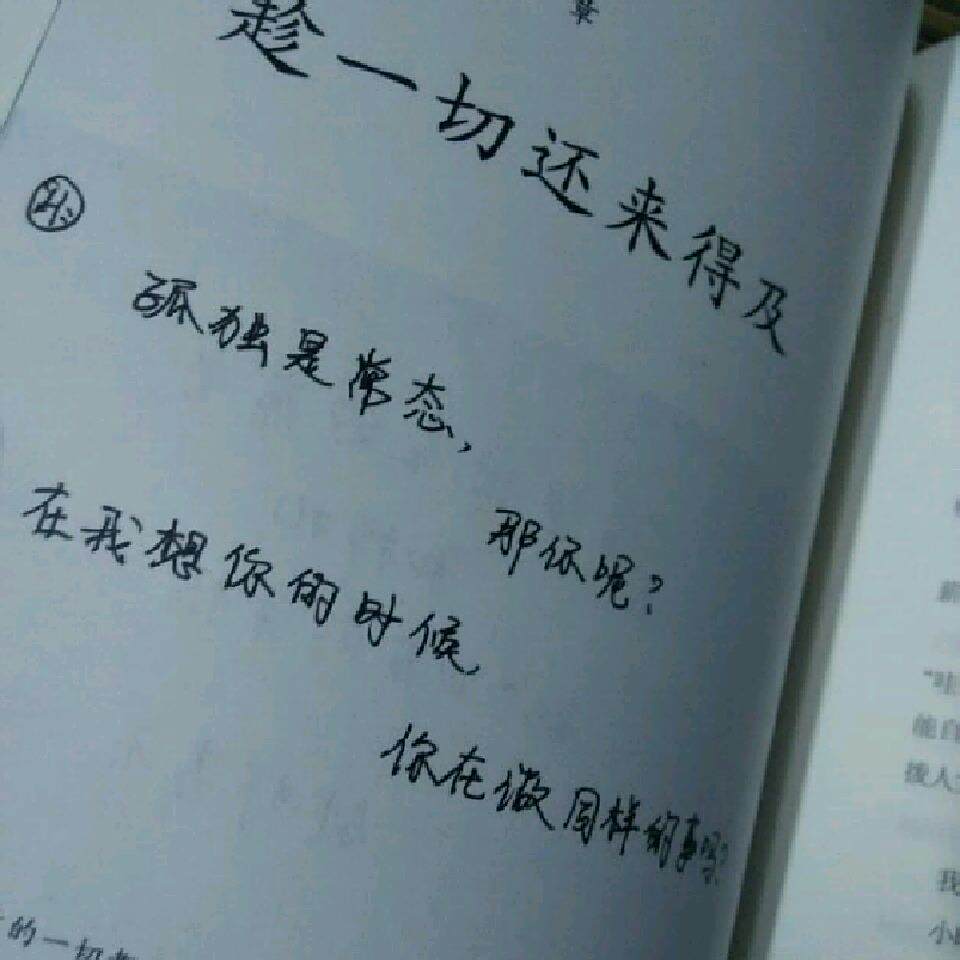 趁一切还来得及
孤独是常态，
那你呢？
在我想你的时候
你在做同样的事吗？
的一切都
“哇
能自
拨人
我
小